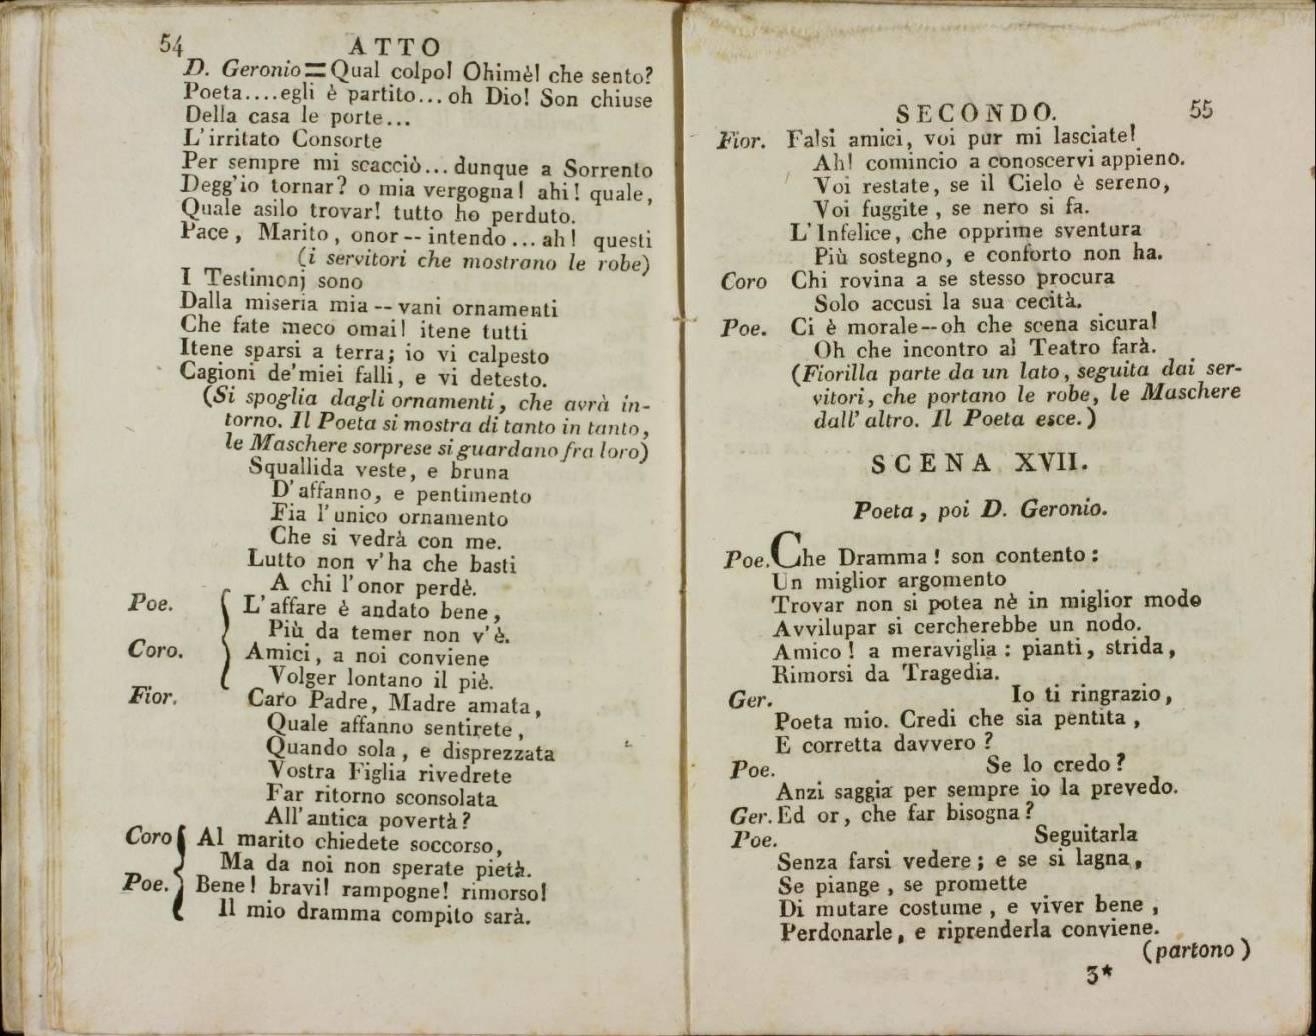 54 ATTO
D. Geronio=Qual colpo! Ohimè! che sento?
Poeta....egli è partito...oh Dio! Son chiuse
Della casa le porte...
L'irritato Consorte
Per sempre mi scacciò...dunque a Sorrento
Degg'io tornar? o mia vergogna! ahi! quale,
Quale asilo trovar! tutto ho perduto.
Pace, Marito, onor--intendo...ah! questi
(i servitori che mostrano le robe)
I Testimonj sono
Dalla miseria mia--vani ornamenti
Che fate meco omai! itene tutti
Itene sparsi a terra; io vi calpesto
Cagioni de'miei falli, e vi detesto.
(Si spoglia dagli ornamenti, che avrà in-
torno. Il Poeta si mostra di tanto in tanto,
le Maschere sorprese si guardano fra loro)
Squallida veste, e bruna
D'affanno, e pentimento
Fia l'unico ornamento
Che si vedrà con me.
Lutto non v'ha che basti
A chi l'onor perdè.
Poe. L'affare è andato bene,
Più da temer non v'è.
Coro. Amici, a noi conviene
Volger lontano il piè.
Fior. Caro Padre, Madre amata,
Quale affanno sentirete,
Quando sola, e disprezzata
Vostra Figlia rivedrete
Far ritorno sconsolata
All'antica povertà?
Coro Al marito chiedete soccorso,
Ma da noi non sperate pietà.
Poe. Bene! bravi! rampogne! rimorso!
Il mio dramma compito sarà.
SECONDO. 55
Fior. Falsi amici, voi pur mi lasciate!
Ah! comincio a conoscervi appieno.
Voi restate, se il Cielo è sereno,
Voi fuggite, se nero si fa.
L'Infelice, che opprime sventura
Più sostegno, e conforto non ha.
Coro Chi rovina a se stesso procura
Solo accusi la sua cecità.
Poe. Ci è morale--oh che scena sicura!
Oh che incontro al Teatro farà.
(Fiorilla parte da un lato, seguita dai ser-
vitori, che portano le robe, le Maschere
dall'altro. Il Poeta esce.)
SCENA XVII.
Poeta, poi D. Geronio.
Poe. Che Dramma! son contento:
Un miglior argomento
Trovar non si potea nè in miglior modo
Avvilupar si cercherebbe un nodo.
Amico! a meraviglia: pianti, strida,
Rimorsi da Tragedia.
Ger. Io ti ringrazio,
Poeta mio. Credi che sia pentita,
E corretta davvero?
Poe. Se lo credo?
Anzi saggia per sempre io la prevedo.
Ger. Ed or, che far bisogna?
Poe. Seguitarla
Senza farsi vedere; e se si lagna,
Se piange, se promette
Di mutare costume, e viver bene,
Perdonarle, e riprenderla conviene.
(partono)
3*